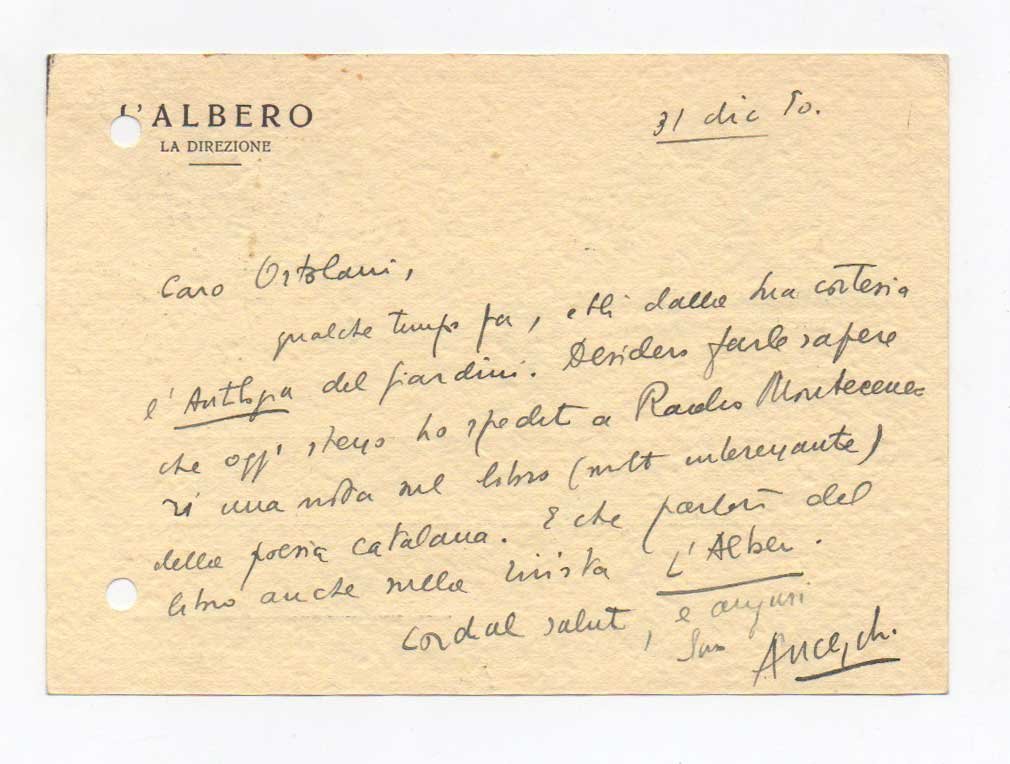 L'ALBERO
LA DIREZIONE
31 dic 50.
Caro Ortolani,
qualche tempo fa, ebbi dalla sua cortesia
l'Antologia del Giardini. Desidero farle sapere
che oggi stesso ho spedito a Radio Montecene=
ri una nota sul libro (molto interessante)
della poesia catalana. E che parlerò del
libro anche sulla rivista L'Albero.
Cordiali saluti, e auguri
Suo Anceschi